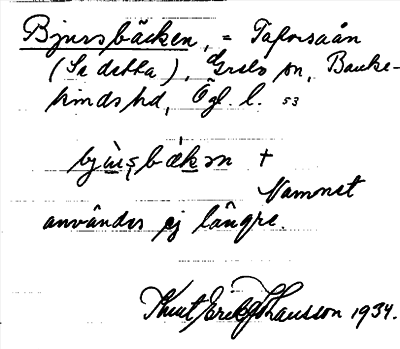 Bjursbäcken, = Taforsaån
(Se detta), Grebo sn, Banke-
kinds hd, Ögl. l. 53
bjùṣbækən +
Namnet
användes ej längre.
Knut Erik Johansson 1934.